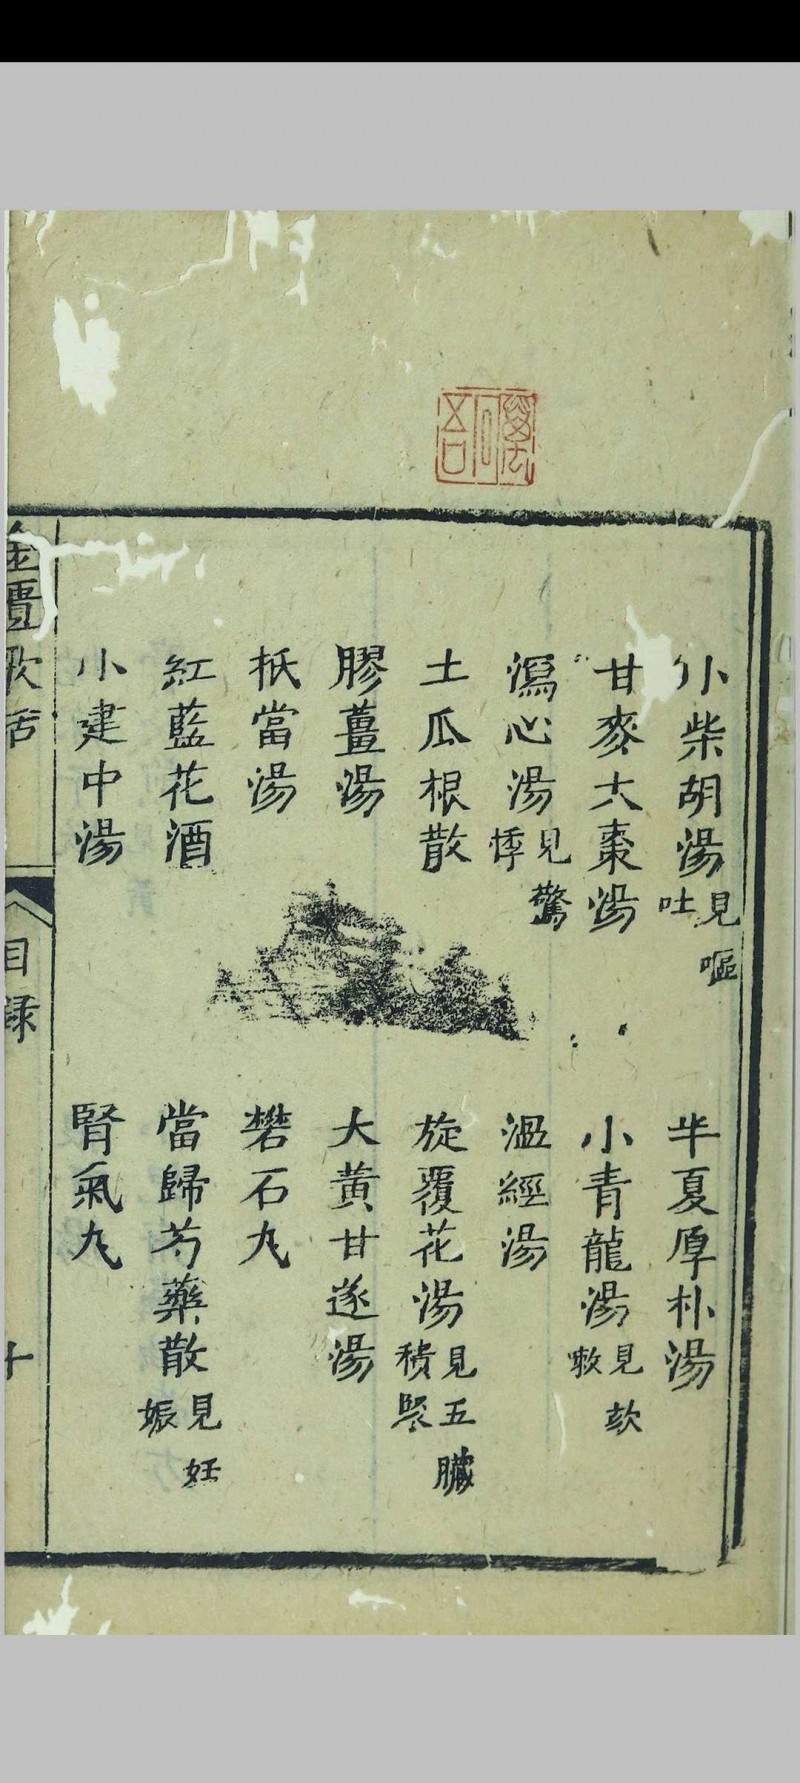 小柴胡湯見嘔吐
半夏厚朴湯
甘麥大棗湯
小青龍湯見欬嗽
瀉心湯見驚悸
溫經湯
土瓜根散
旋覆花湯見五臟積聚
膠薑湯
大黃甘遂湯
抵當湯
礬石丸
紅藍花酒
當歸芍藥散見妊娠
小建中湯
腎氣丸
金匱歌括
目錄
十